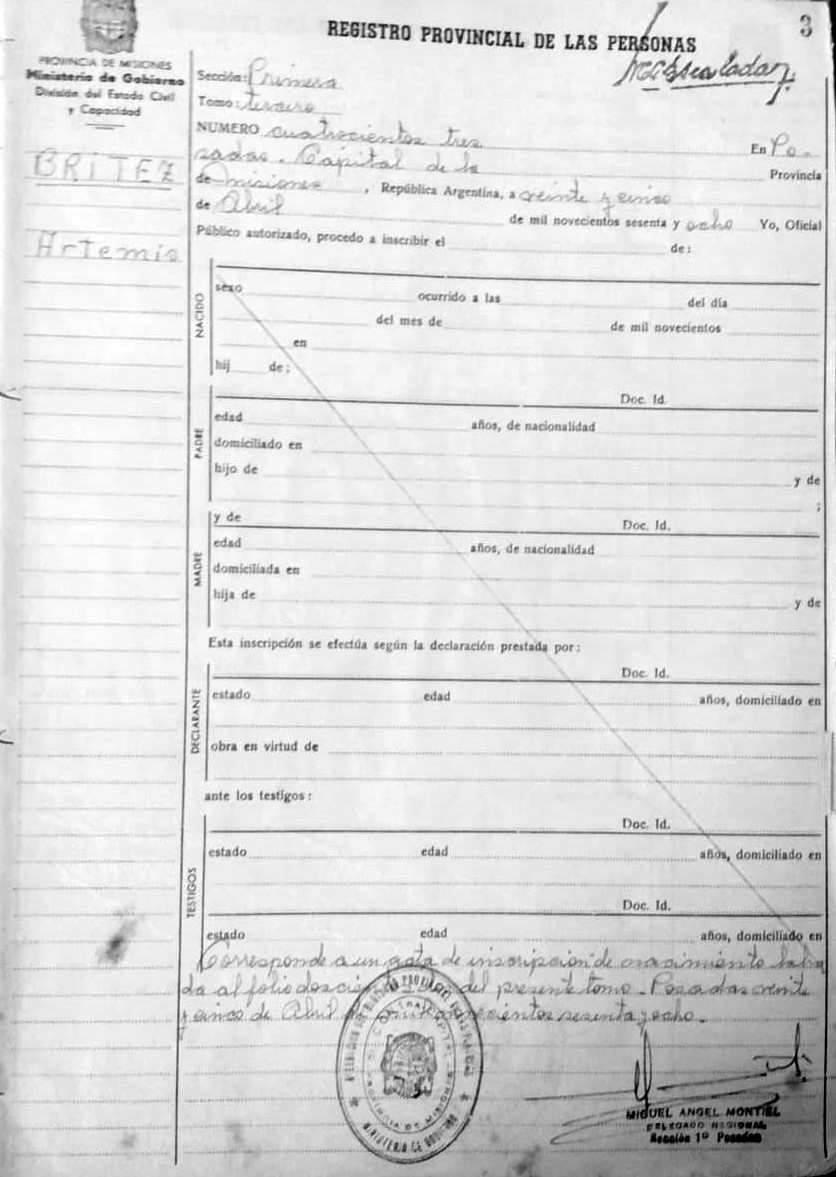 3
REGISTRO PROVINCIAL DE LAS PERSONAS
PROVINCIA DE MISIONES
Ministerio de Gobierno
División del Estado Civil
y Capacidad
BRITEZ
Artemio
Sección: Primera
Tomo: tercero
NUMERO cuatrocientos tres En Po-
sadas. Capital de la Provincia
de misiones, República Argentina, a veinte y cinco
de Abril de mil novecientos sesenta y ocho Yo, Oficial
Público autorizado, procedo a inscribir el de:
NACIDO
sexo ocurrido a las del día
del mes de de mil novecientos
en
hij de:
PADRE
Doc. Id.
edad años, de nacionalidad
domiciliado en
hijo de y de
;
MADRE
y de Doc. Id.
edad años, de nacionalidad
domiciliada en
hija de y de
Esta inscripción se efectúa según la declaración prestada por:
DECLARANTE
Doc. Id.
estado edad años, domiciliado en
obra en virtud de
ante los testigos:
TESTIGOS
Doc. Id.
estado edad años, domiciliado en
Doc. Id.
estado edad años, domiciliado en
Corresponde a un acta de inscripción de nacimiento labra
da al folio del presente tomo. Posadas veinte
y cinco de Abril de mil novecientos sesenta y ocho.
PROVINCIA DE MISIONES
MINISTERIO DE GOBIERNO
MIGUEL ANGEL MONTIEL
DELEGADO REGIONAL
Sección 1º Posadas